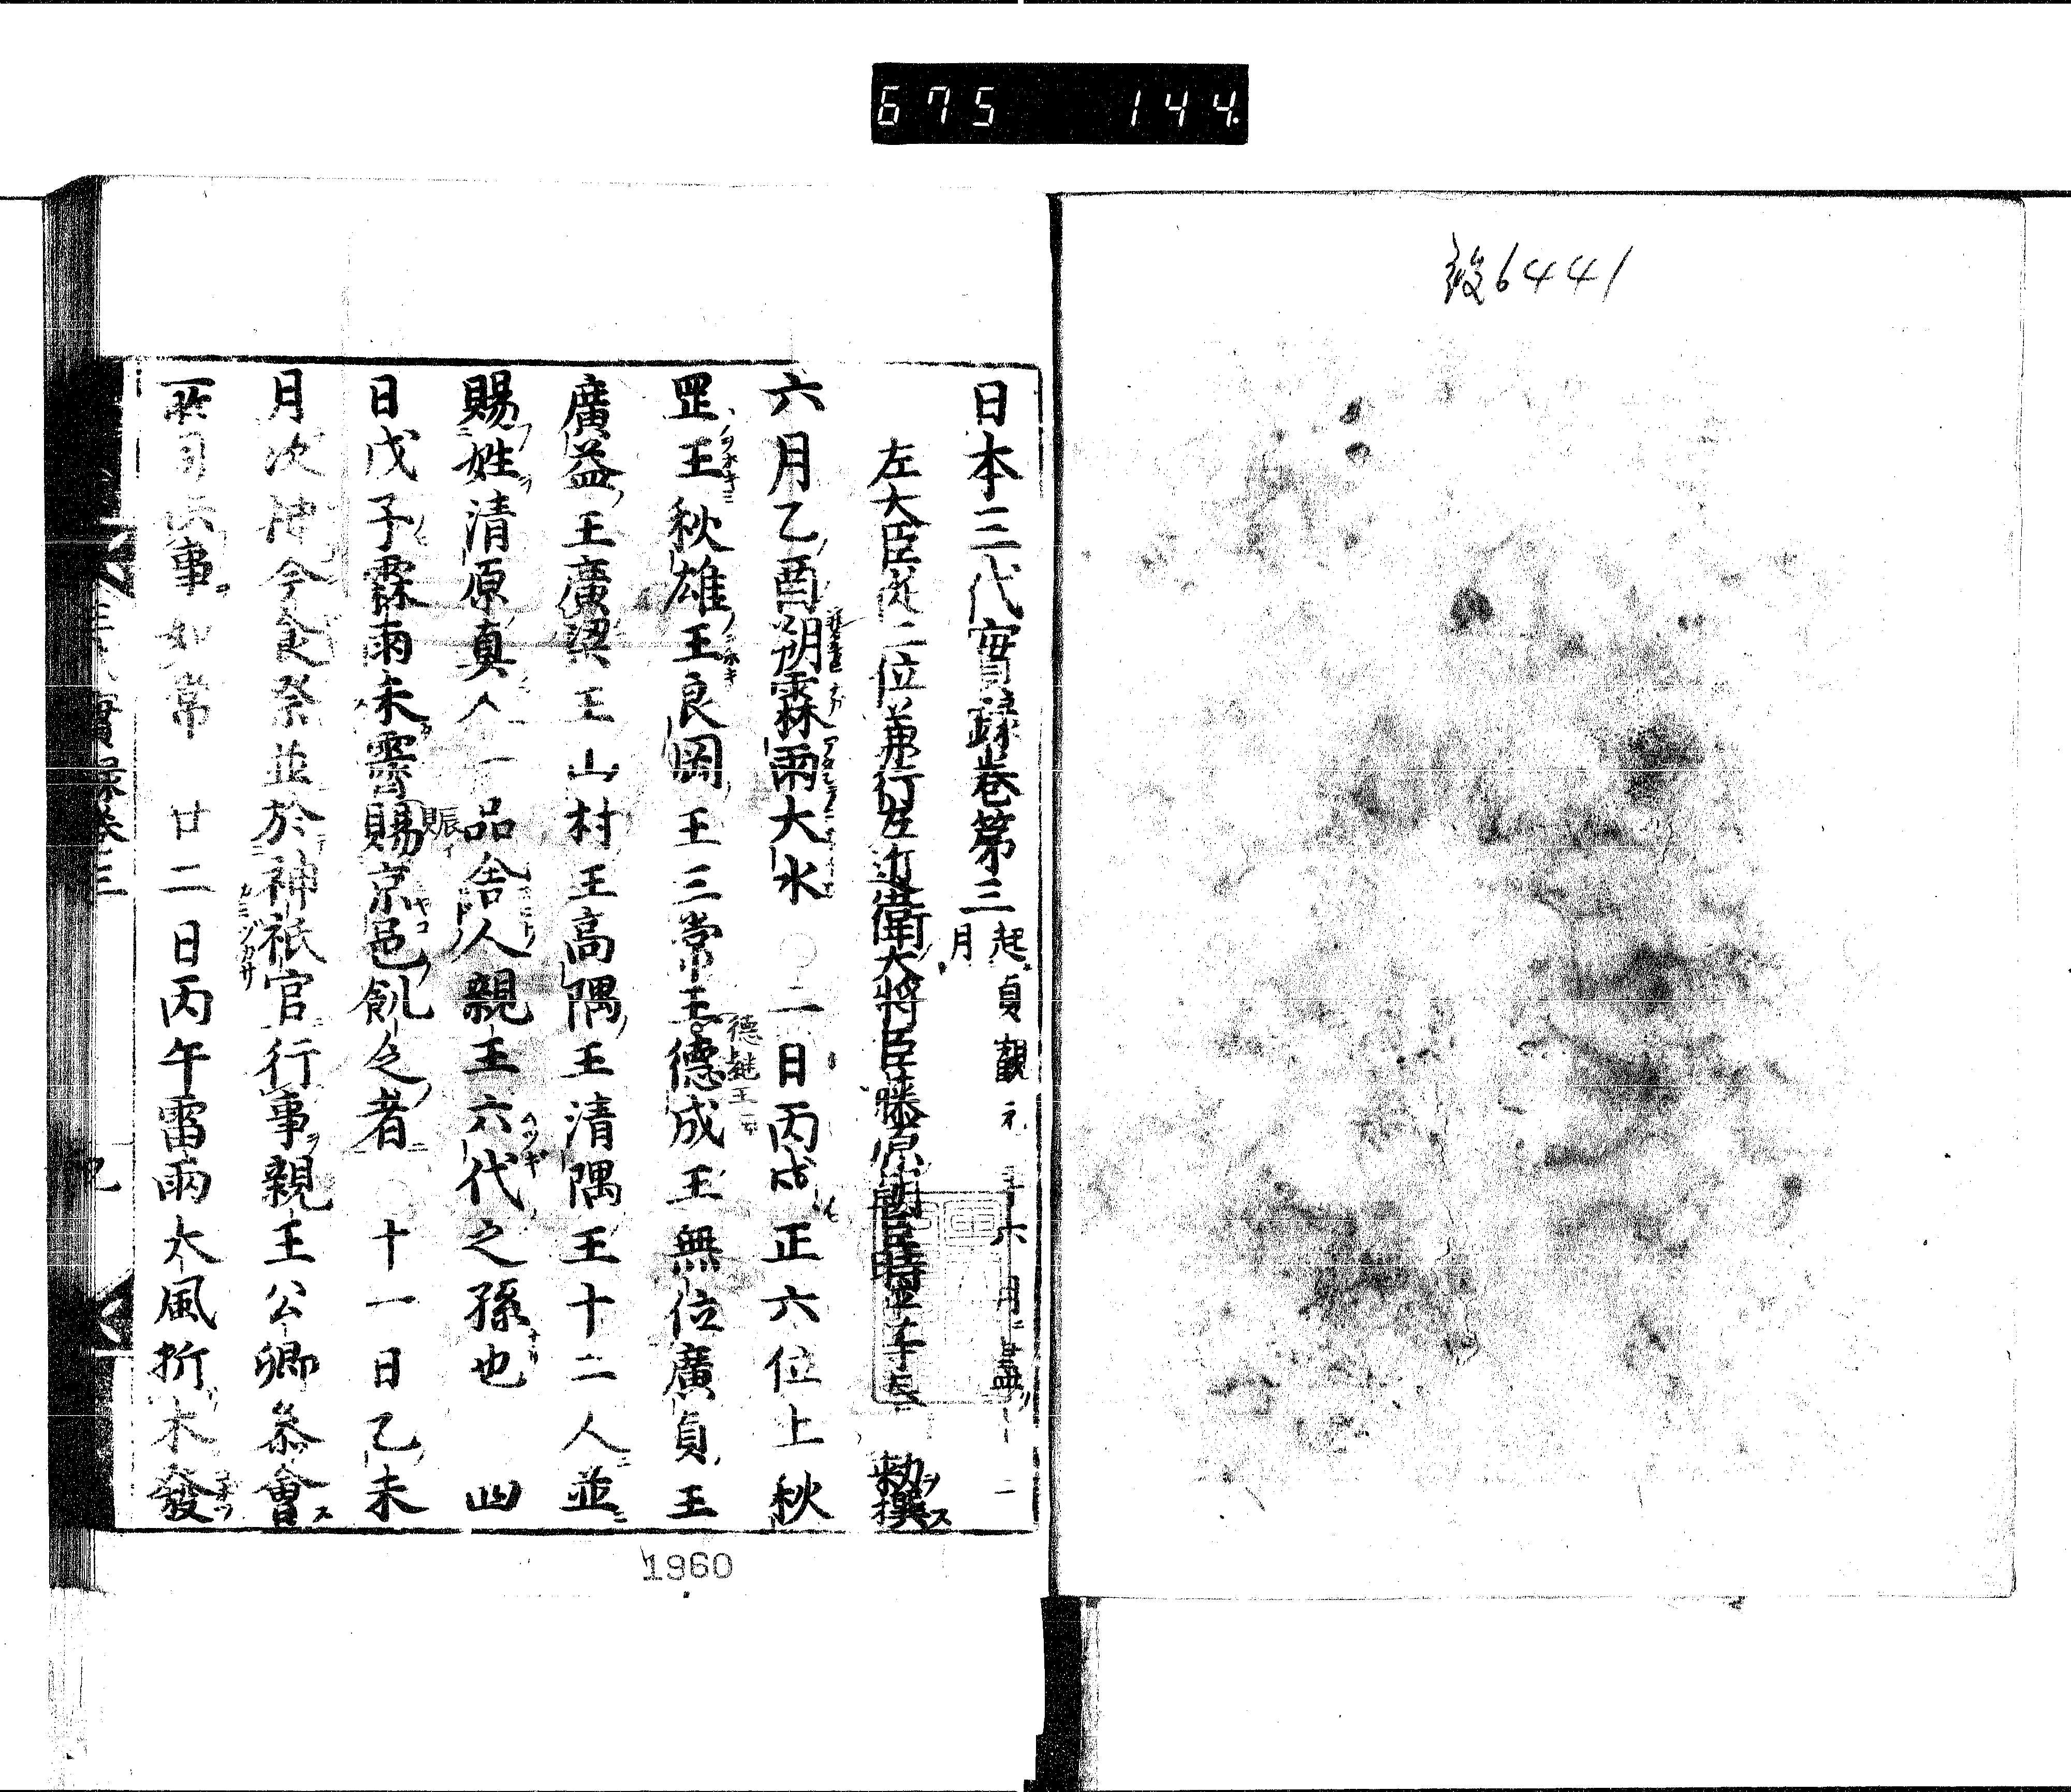 675 144
6441
日本三代實錄卷第三 起貞觀元年六月盡十二月
左大臣從二位兼行左近衛大將臣藤原朝臣時平等奉 勅撰
六月乙酉朔霖雨大水 ○二日丙戌正六位上秋
罡王秋雄王良岡王三常王德成王無位廣貞王
德継王
廣益王廣梁王山村王高隅王清隅王十二人並
賜姓清原真人一品舍人親王六代之孫也 四
日戊子霖雨未霽賜京邑飢乏者 ○十一日乙未
賑イ
月次神今食祭並於神祇官行事親王公卿叅會
所司供事如常 廿二日丙午雷雨大風折木發
三代實錄卷三
1960